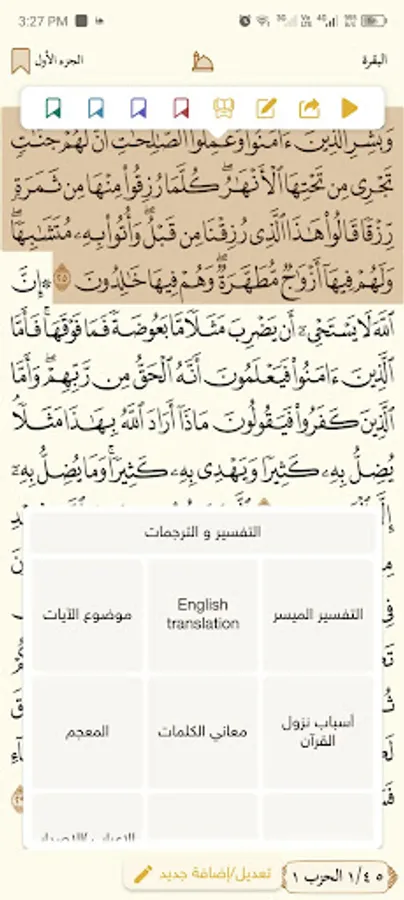 3:27 PM
البقرة
الجزء الأول
وَبَشِّرِ الَّذِينَ ءَامَنُوا وَعَمِلُوا الصَّالِحَاتِ أَنَّ لَهُمْ جَنَّاتٍ
تَجْرِي مِن تَحْتِهَا الْأَنْهَارُ ۖ كُلَّمَا رُزِقُوا مِنْهَا مِن ثَمَرَةٍ
رِّزْقًا قَالُوا هَٰذَا الَّذِي رُزِقْنَا مِن قَبْلُ ۖ وَأُتُوا بِهِ مُتَشَابِهًا ۖ
وَلَهُمْ فِيهَا أَزْوَاجٌ مُّطَهَّرَةٌ ۖ وَهُمْ فِيهَا خَالِدُونَ ٢٥ ۞ إِنَّ
اللَّهَ لَا يَسْتَحْيِ أَن يَضْرِبَ مَثَلًا مَّا بَعُوضَةً فَمَا فَوْقَهَا ۚ فَأَمَّا
الَّذِينَ ءَامَنُوا فَيَعْلَمُونَ أَنَّهُ الْحَقُّ مِن رَّبِّهِمْ ۖ وَأَمَّا
الَّذِينَ كَفَرُوا فَيَقُولُونَ مَاذَا أَرَادَ اللَّهُ بِهَٰذَا مَثَلًا ۘ
يُضِلُّ بِهِ كَثِيرًا وَيَهْدِي بِهِ كَثِيرًا ۚ وَمَا يُضِلُّ بِهِ
التفسير و الترجمات
التفسير الميسر
English translation
موضوع الآيات
أسباب نزول القرآن
معاني الكلمات
المعجم
تعديل/إضافة جديد
٥ ١/٤ الحزب ١